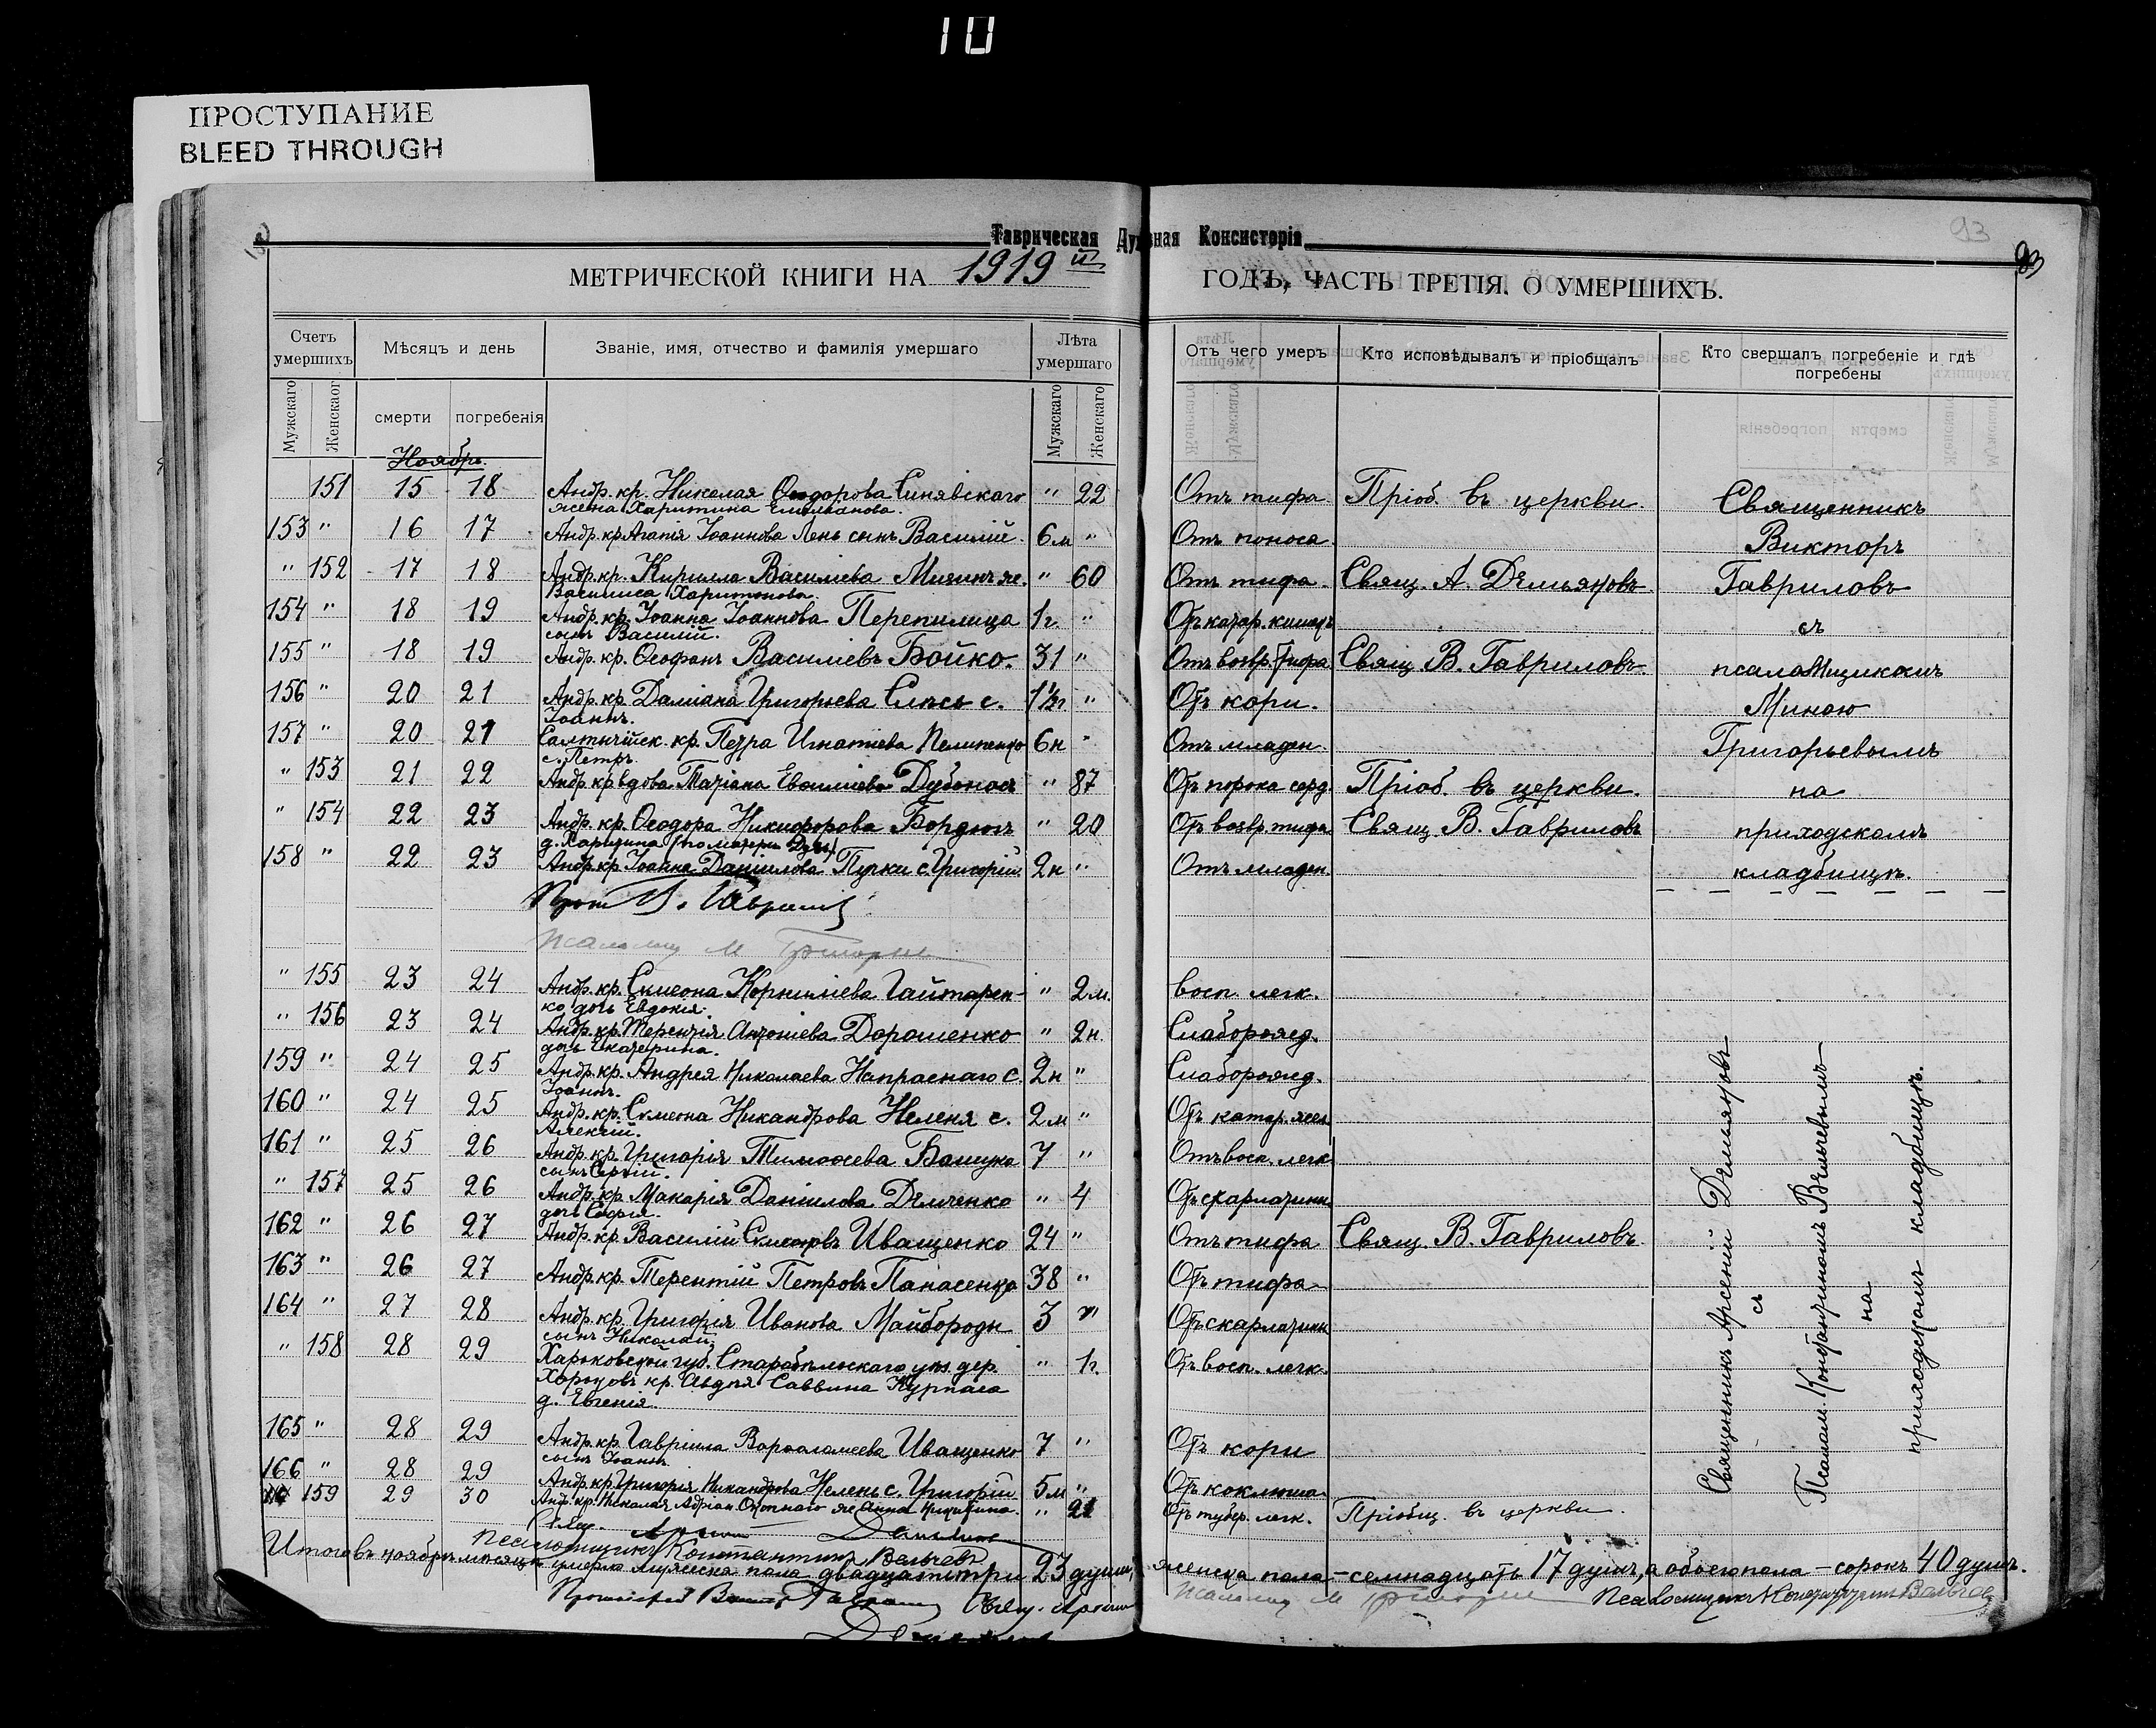 10
ПРОСТУПАНИЕ
BLEED THROUGH
93
93
Таврическая Духовная Консисторія
МЕТРИЧЕСКОЙ КНИГИ НА 1919й ГОДЪ, ЧАСТЬ ТРЕТІЯ. О УМЕРШИХЪ.
Счетъ умершихъ
Мѣсяцъ и день
Званіе, имя, отчество и фамилія умершаго
Лѣта умершаго
Отъ чего умеръ
Кто исповѣдывалъ и пріобщалъ
Кто свершалъ погребеніе и гдѣ погребены
Мужскаго Женскаог смерти погребенія Мужскаго Женскаго
Ноябрь.
151 15 18 Андр. кр. Николая Ѳеодорова Синявскаго " 22 Отъ тифа Пріоб. въ церкви. Священникъ
жена Харитина Емельянова.
153 " 16 17 Андр. кр. Агапія Іоаннова Лень сынъ Василій 6м " Отъ поноса Викторъ
" 152 17 18 Андр. кр. Кирилла Василіева же. " 60 Отъ тифа Свящ. А. Демьяновъ Гавриловъ
Василиса Харитонова.
154 " 18 19 Андр. кр. Іоанна Іоаннова Перепилица 1г. " Отъ катар. кишекъ съ
сынъ Василій.
155 " 18 19 Андр. кр. Ѳеофанъ Василіевъ Бойко. 31 " Отъ возвр. тифа Свящ. В. Гавриловъ псаломщикомъ
156 " 20 21 Андр. кр. Даміана Григорьева с. 1½г " Отъ кори. Миною
Іоаннъ.
157 " 20 21 кр. Петра Игнатіева 6н " Отъ младен Григорьевымъ
с. Петръ.
" 153 21 22 Андр. кр вдова Татіана Дубонос " 87 Отъ порока серд. Пріоб. въ церкви. на
" 154 22 23 Андр. кр. Ѳеодора Никифорова " 20 Отъ возвр. тифа Свящ. В. Гавриловъ приходскомъ
д. Харитина
158 " 22 23 Андр. кр. Іоанна Даніилова Пучки с. Григорій. 2н " Отъ младен. кладбищѣ.
Прот В. Гаврилов
Псаломщ М Григорьев
" 155 23 24 Андр. кр. Симеона Корниліева Гайтарен- " 2м. восп. легк.
ко дочь Евдокія.
" 156 23 24 Андр. кр. Терентія Антоніева Дорошенко " 2н. Слаборожд.
дочь Екатерина.
159 " 24 25 Андр. кр. Андрея Николаева Напраснаго с. 2н " Слаборожд.
Іоаннъ.
160 " 24 25 Андр. кр. Симеона Никандрова Неленя с. 2м " Отъ катар. жел.
Алексій.
161 " 25 26 Андр. кр. Григорія Тимоѳеева 7 " Отъ восп. легк
сынъ Сергій.
" 157 25 26 Андр. кр. Макарія Даніилова Демченко " 4 Отъ скарлатины
дочь Софія.
162 " 26 27 Андр. кр. Василій Симеоновъ Иващенко 24 " Отъ тифа Свящ. В. Гавриловъ.
163 " 26 27 Андр. кр. Терентій Петровъ Панасенко 38 " Отъ тифа
164 " 27 28 Андр. кр. Григорія Иванова Майбороды 3 " Отъ скарлатины
сынъ Николай
" 158 28 29 Харьковской губ. Старобѣльскаго уѣз. дер. " 1г. Отъ восп. легк.
кр. Авдѣя Саввина
д. Евгенія.
165 " 28 29 Андр. кр. Гавріила Варѳоломеева Иващенко 7 " Отъ кори
сынъ Іоаннъ.
166 " 28 29 Андр. кр. Григорія Никандрова Нелень с. Григорій 5м " Отъ коклюша
159 29 30 Андр. кр. Николая Адріан. же Анна Никитина. " 21 Отъ тубер. легк. Пріобщ. въ церкви.
Священникъ Арсеній Демьяновъ
съ
Псалом. Константиномъ Вельчевымъ
на
приходскомъ кладбищѣ.
Свящ. Арсений Демьянов
Псаломщикъ Константинъ Вельчевъ
Итого въ ноябрѣ мѣсяцѣ умерло мужеска пола двадцать три 23 души, женска пола – семнадцать 17 душъ, а обоего пола – сорокъ 40 душъ.
Протоіерей Гаврилов Свящ. Арсений Псаломщ М Григорьев Псаломщикъ Константинъ Вельчев
Демьянов